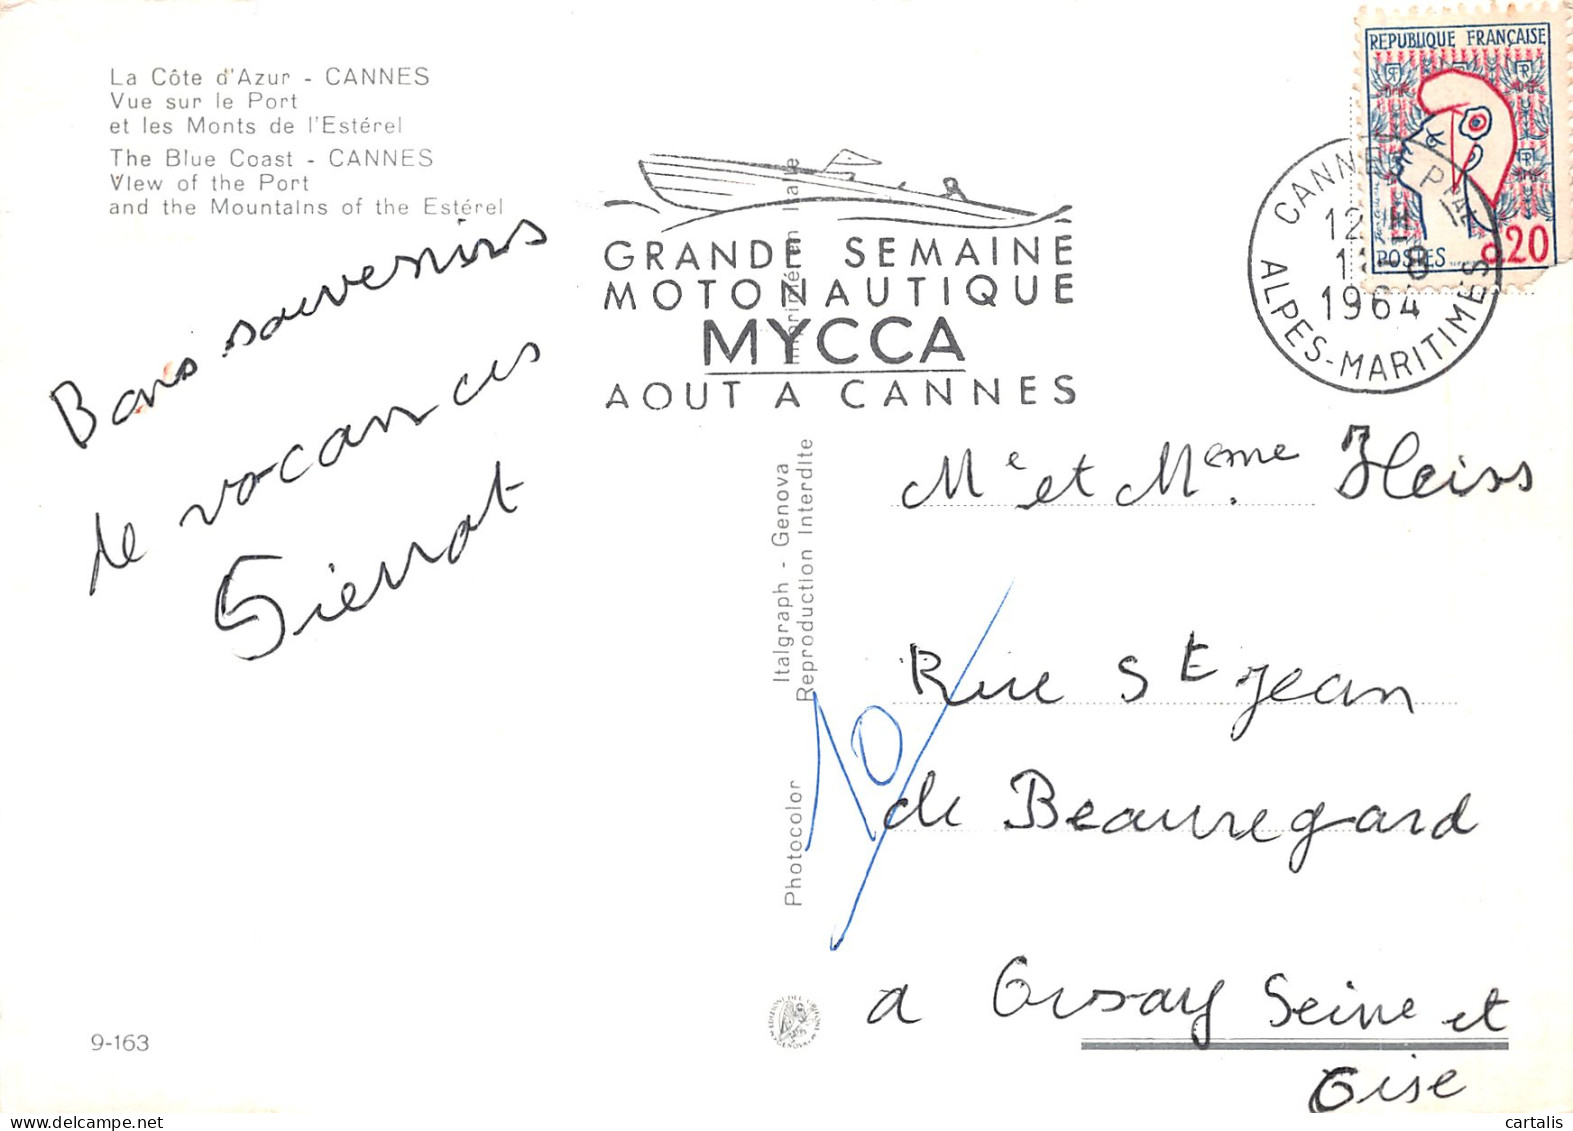 La Côte d'Azur - CANNES
Vue sur le Port
et les Monts de l'Estérel
The Blue Coast - CANNES
View of the Port
and the Mountains of the Estérel
Bons souvenirs
de vacances
Sierrat
9-163
GRANDE SEMAINE
MOTONAUTIQUE
MYCCA
AOUT A CANNES
Imprimé en Italie
Italgraph - Genova
Reproduction Interdite
Photocolor
REPUBLIQUE FRANÇAISE
POSTES
0,20
CANNES PPAL
12H
1964
ALPES-MARITIMES
Me et Meme Heiss
Rue St Jean
de Beauregard
a Orsay Seine et
Oise
10
cartalis